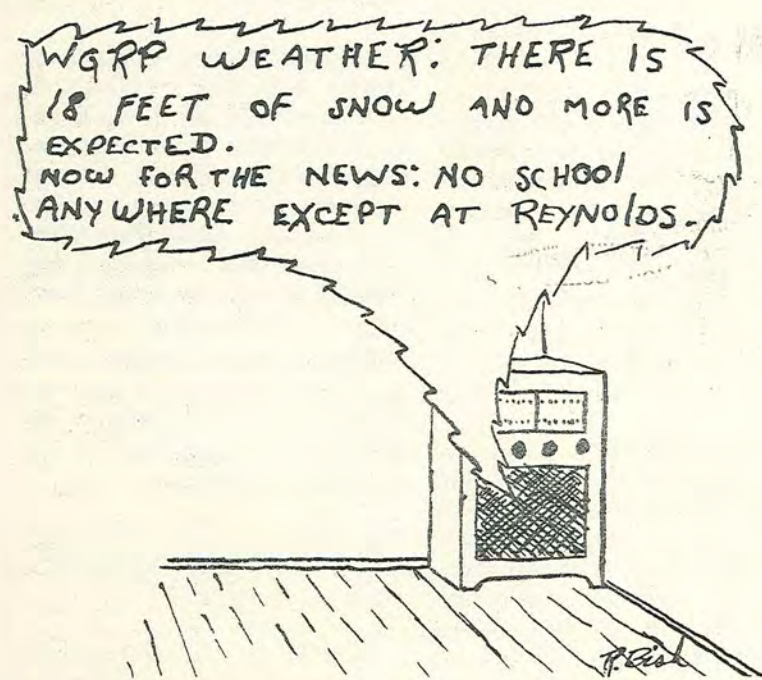 WGRP WEATHER: THERE IS
18 FEET OF SNOW AND MORE IS
EXPECTED.
NOW FOR THE NEWS: NO SCHOOl
ANYWHERE EXCEPT AT REYNOlDS.
R. Bish